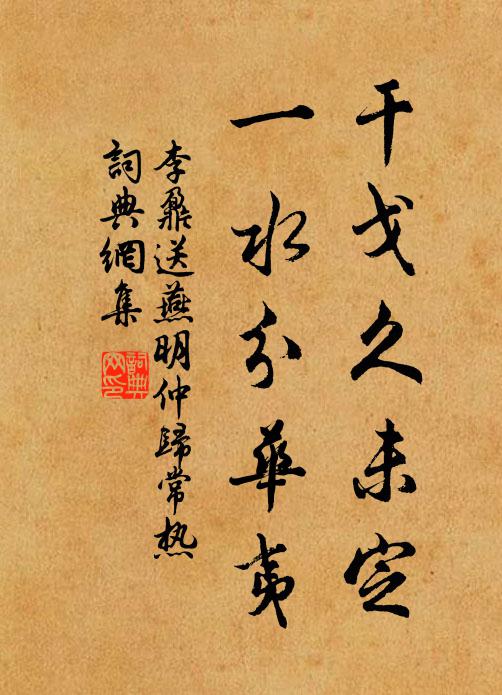 干戈久未定
一水分華夷
李鼐送燕明仲歸常热
詞典網集
詞典网印